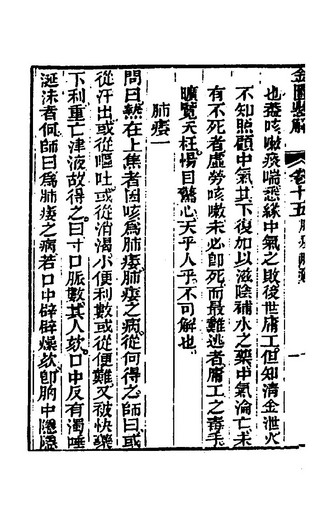 金匱懸解 卷十五 肺痿肺癰 一
也蓋咳嗽痰喘悉緣中氣之敗後世庸工但知清金泄火
不知照顧中氣其下復加以滋陰補水之藥中氣淪亡未
有不死者虛勞咳嗽未必卽死而最難逃者庸工之毒手
曠覽夭枉惕目驚心天乎人乎不可解也
肺痿一
問曰熱在上焦者因咳爲肺痿肺痿之病從何得之師曰或
從汗出或從嘔吐或從消渴小便利數或從便難又被快藥
下利重亡津液故得之曰寸口脈數其人欬口中反有濁唾
涎沫者何師曰爲肺痿之病若口中辟辟燥欬卽胸中隱隱